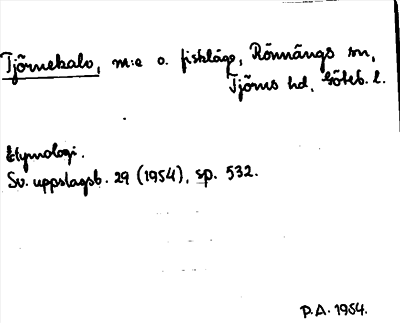 Tjörnekalv, m:e o. fiskläge, Rönnängs sn,
Tjörns hd, Göteb. l.
Etymologi.
Sv. uppslagsb. 29 (1954), sp. 532.
P.A. 1954.